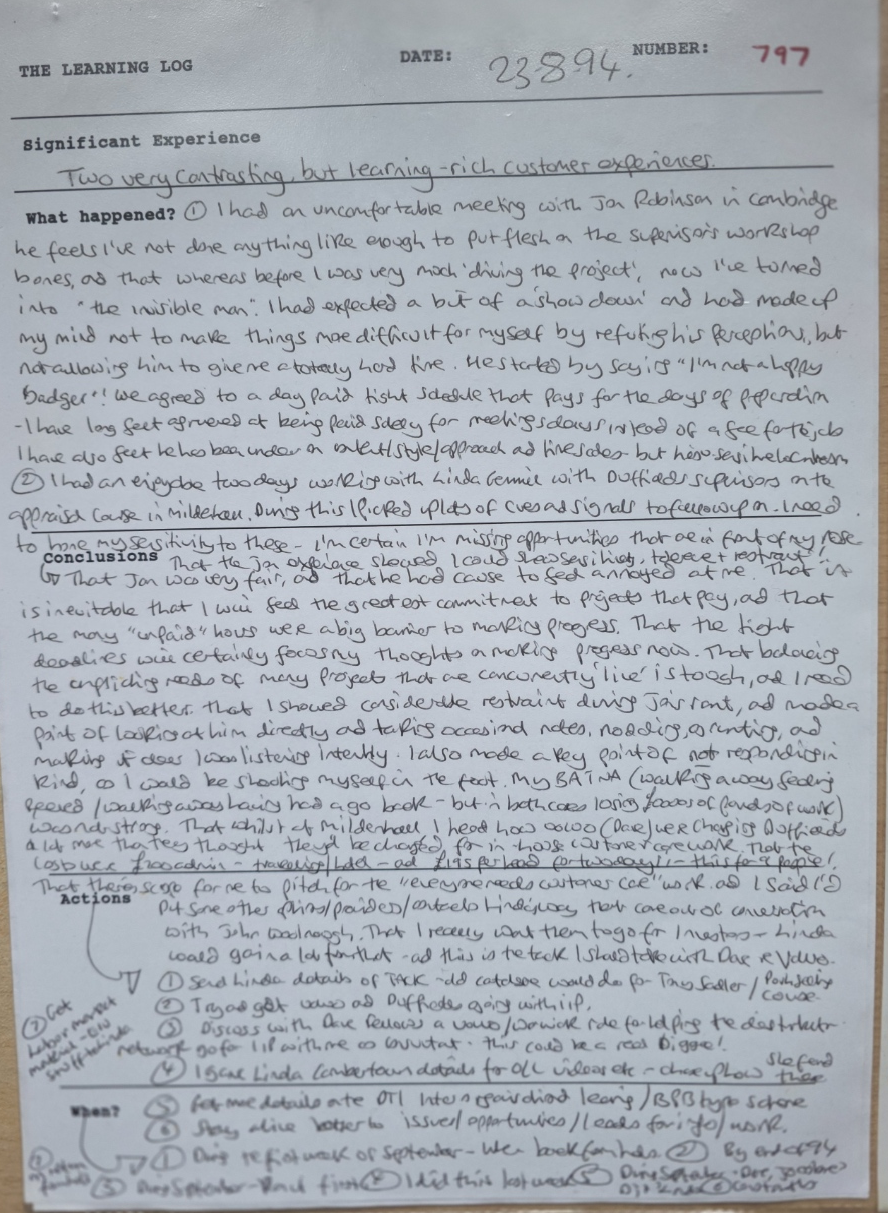 THE LEARNING LOG DATE: 23-8-94. NUMBER: 797
Significant Experience
Two very contrasting, but learning-rich customer experiences.
What happened? ① I had an uncomfortable meeting with Jon Robinson in Cambridge
he feels I've not done anything like enough to put flesh on the supervisors workshop
bones, and that whereas before I was very much 'driving the project', now I've turned
into "the invisible man". I had expected a bit of a 'show down' and had made up
my mind not to make things more difficult for myself by refuting his perceptions, but
not allowing him to give me a totally hard time. He started by saying "I'm not a happy
badger"! We agreed to a day paid tight schedule that pays for the days of preparation
- I have long felt aggrieved at being paid solely for meetings/days instead of a fee for the job
I have also felt he has been unclear on content/style/approach and timescales - but
② I had an enjoyable two days working with Linda Gemmil with Duffields supervisors on the
appraisal course in Mildenhall. During this I picked up lots of cues and signals to follow up on. I need
to hone my sensitivity to these - I'm certain I'm missing opportunities that are in front of my nose
Conclusions That the Jon experience showed I could show sensitivity, tolerance + restraint!
That Jon was very fair, and that he had cause to feel annoyed at me. That it
is inevitable that I will feel the greatest commitment to projects that pay, and that
the many "unpaid" hours were a big barrier to making progress. That the tight
deadlines will certainly focus my thoughts on making progress now. That balancing
the conflicting needs of many projects that are concurrently 'live' is tough, and I need
to do this better. That I showed considerable restraint during Jon's rant, and made a
point of looking at him directly and taking occasional notes, nodding, grunting, and
making it clear I was listening intently. I also made a key point of not responding in
kind, as I would be shooting myself in the foot. My BATNA (walking away feeling
/walking away having had a go back - but in both cases losing £000s of pounds of work)
wasn't strong. That whilst at Mildenhall I heard how (Dave) were charging Duffields
a lot more than they thought they'd be charged, for in house customer care work. That the
costs were admin - travelling/hotel - and per head for two days! - this for people!
That there is scope for me to pitch for the "everyone needs customer care" work. and I said I'd
Actions put some other Linda's way that came out of conversation
with John Woolnough. That I really want them to go for Investors - Linda
would gain a lot from that - and this is the tack I should take with Dave
① Send Linda details of TACK - old catalogue would do for Tony Sadler/ course
② Try and get and Duffields going with iip.
③ Discuss with Dave Fellows a role for helping the distributor
network go for IIP with me as consultant. This could be a real biggie!
④ I gave Linda Cambertown details for OLL videos etc - check how she found them
When? ⑤ Get more details on the OTJ learning/ type scheme
⑥ Stay alive better to issues/opportunities/leads for info/work.
① During the first week of September - ② By end of 94
③ During September - ④ I did this last week ⑤ During September